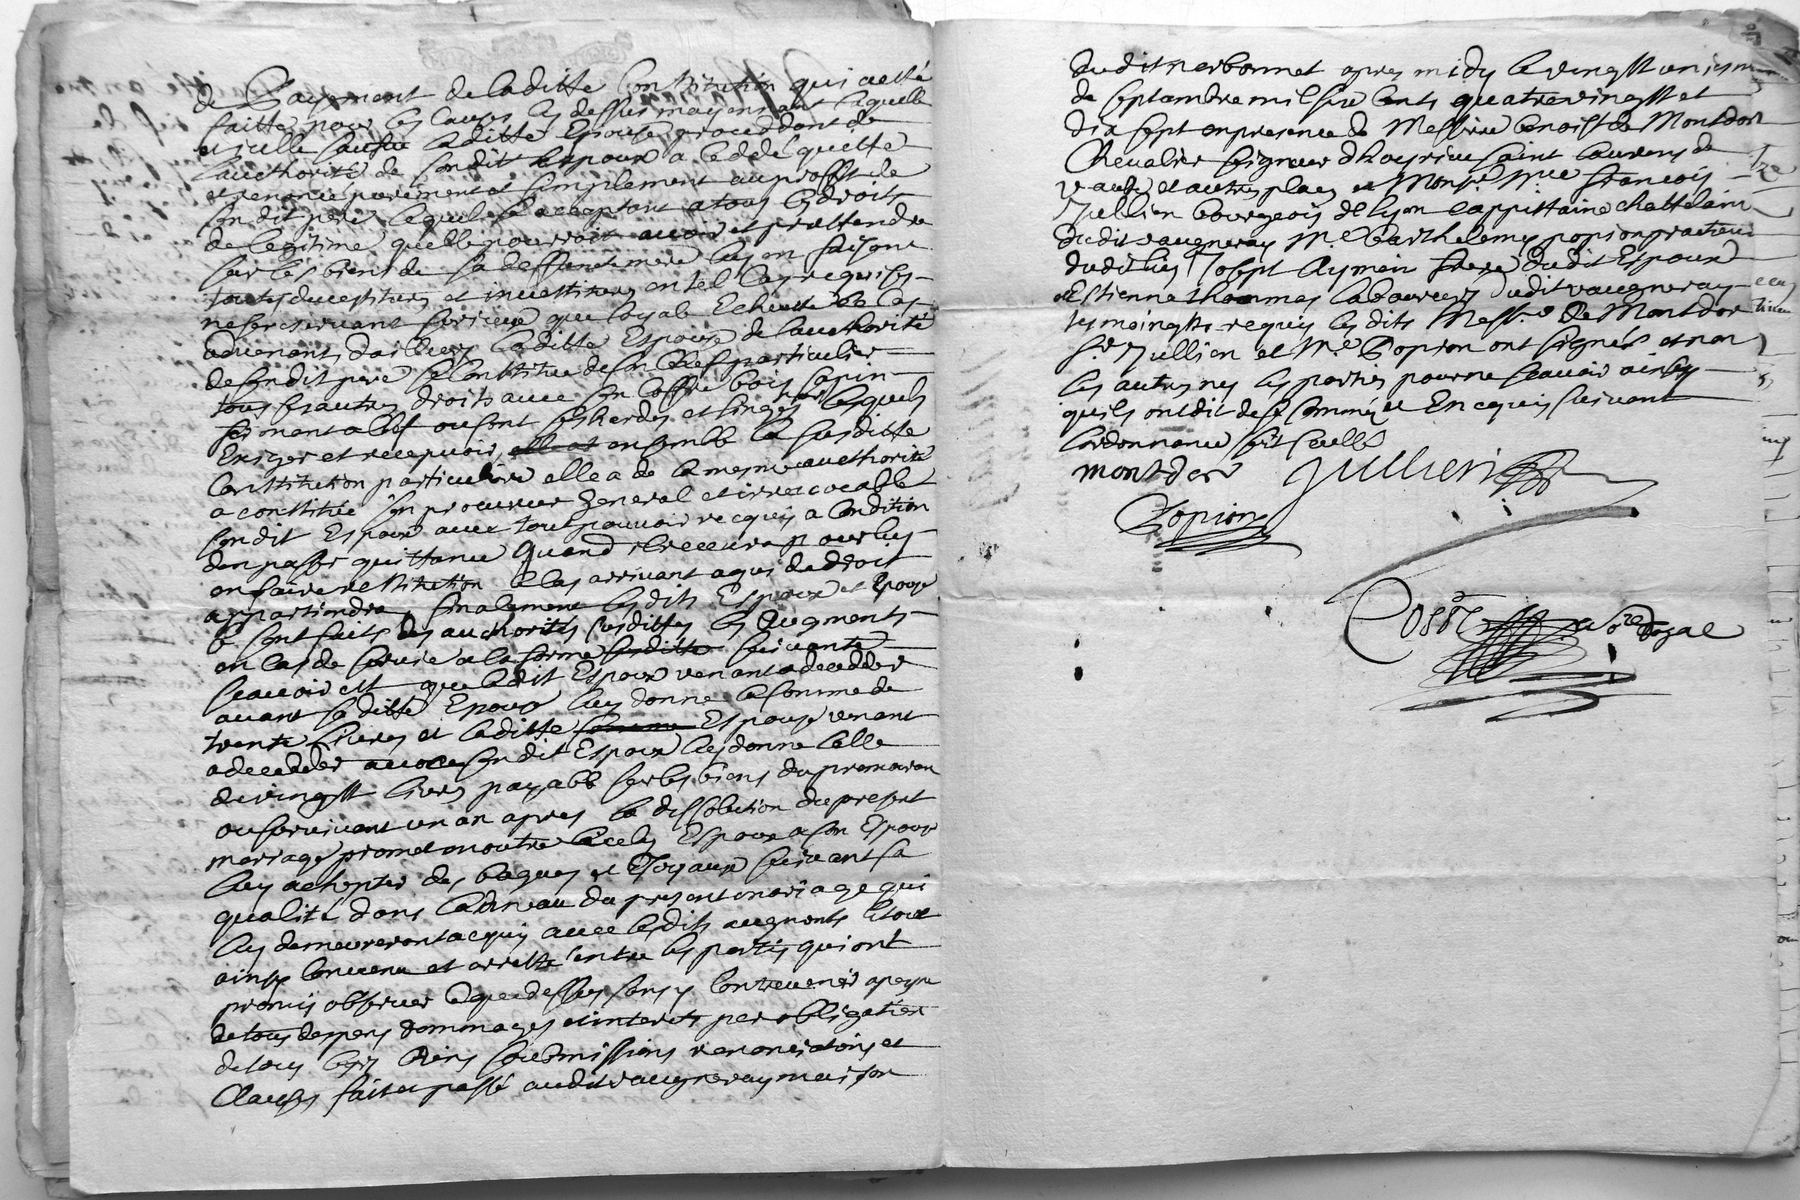 de Payement de laditte Constitution qui a esté
faitte pour les causes cy dessus moyennant laquelle
et icelle laditte Epouse proceddant de
l'authorité de sondit Espoux a ceddé quitté
et renoncé purement et simplement au proffit de
son dit pere lequel acceptant a tous les droits
de legitime quelle pourroit avoir et prettendre
sur les biens de sa deffunte mere luy en faisant
toutes devestitures et investitures en tel cas requises
ne se reservant que loyale Echeutte le cas
advenant dailleurs laditte Espouse de l'authorité
de son dit pere se Constitue de son Chef particulier
tous ses autres droits avec son coffre bois sapin
fermant a clef ou sont ses hardes et linges lesquels
Exiger et recepvoir ensemble la susditte
Constitution particuliere elle a de la mesme authorité
a constitué son procureur general et irrevocable
son dit Espoux avec tout pouvoir recquis a Condition
den passer quittance quand il recevra pour luy
en faire restitution le cas arrivant a qui de droit
appartiendra finalement lesdits Espoux et Epouse
se sont faits des authorités susdittes les Augments
en cas de survie a la forme suivante
scavoir est que ledit Espoux venant a decedder
avant sa ditte Epouse luy donne la somme de
trente livres et laditte Espouse venant
a decedder avant son dit Espoux luy donne celle
de vingtt livres payable sur les biens du premourant
au survivant un an apres la dissolution du present
mariage promet en outre icelui Espoux a son Espouse
luy achepter des bagues et Joyaux suivant sa
qualité dans lanneau du present mariage qui
luy demeureront acquis avec lesdits augments le tout
ainsy convenu et arresté entre les parties qui ont
promis observer ce que dessus sans y contrevenir a peyne
de tous despens dommages et interets par obligation
de tous leurs biens soubmissions renonciations et
Clauses fait et passé audit vaugneray maison
dudit narbonnet apres midy le vingtt unieme
de septembre mil six cents quatre vingtt et
dix sept en presence de Messire benoist de Montdor
Chevalier seigneur d'hoyrieu saint laurens de
vaux et autres places et Monsr. Me francois
Jullien bourgeois de lyon cappittaine chattelain
dudit vaugneray Me. barthelemy popion practicien
dudit lieu Josept Aymein frere dudit Espoux
et Estienne thommas laboureur dudit vaugneray
tesmoingts requis lesdits Messire de Montdor
Sr. Jullien et Me. Popion ont signés et non
les autres ny les parties pour ne scavoir ainsy
quils ont dit de ce sommés et Enquis suivant
lordonnance soit scellé
montdor Jullien
Popion
Coste nore Royal